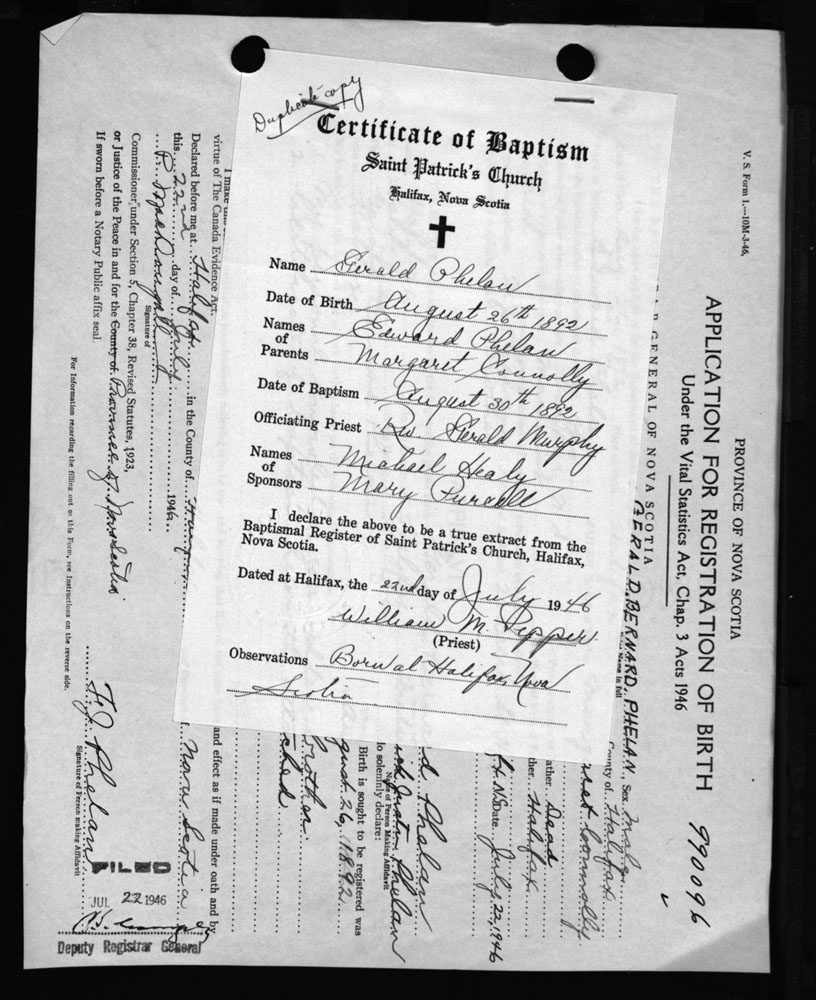 Duplicate copy
Certificate of Baptism
Saint Patrick's Church
Halifax, Nova Scotia
Name Gerald Phelan
Date of Birth August 26th 1892
Names of Parents Edward Phelan
Margaret Connolly
Date of Baptism August 30th 1892
Officiating Priest Rev. Gerald Murphy
Names of Sponsors Michael Healy
Mary Purcell
I declare the above to be a true extract from the
Baptismal Register of Saint Patrick's Church, Halifax,
Nova Scotia.
Dated at Halifax, the 22nd day of July 1946
William M. Pepper
(Priest)
Observations Born at Halifax, Nova
Scotia
V. S. Form 1.—10M-3-46.
PROVINCE OF NOVA SCOTIA
APPLICATION FOR REGISTRATION OF BIRTH 990096
Under the Vital Statistics Act, Chap. 3 Acts 1946
GENERAL OF NOVA SCOTIA
GERALD BERNARD PHELAN, Sex Male
Name in full
County of Halifax
ret Connolly
ather Dead
ther Halifax
N.S. Date July 22, 1946
d Phelan
Justin Phelan
Name of Person Making Affidavit
lo solemnly declare:
Birth is sought to be registered was
gust 26, 1892
rother
ched
and effect as if made under oath and by
I make
virtue of The Canada Evidence Act.
Declared before me at Halifax in the County of
Nova Scotia
this 22nd day of July 1946
Signature of
Commissioner, under Section 5, Chapter 38, Revised Statutes, 1923,
or Justice of the Peace in and for the County of Province of Nova Scotia
If sworn before a Notary Public affix seal.
F. J. Phelan
Signature of Person making Affidavit
For Information regarding the filling out of this Form, see Instructions on the reverse side.
FILED
JUL 22 1946
Deputy Registrar General